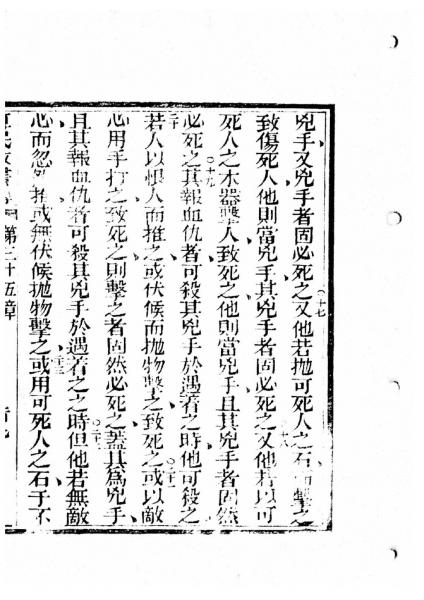 兇手又兇手者固必死之又他若拋可死人之石而擊之
致傷死人他則當兇手其兇手者固必死之又他若以可
死人之木器擊人致死之他則當兇手且其兇手者固然
必死之其報血仇者可殺其兇手於遇着之之時他可殺之
若人以恨人而推之或伏候而拋物擊之致死之或以敵
心用手打之致死之則擊之者固然必死之蓋其為兇手
且其報血仇者可殺其兇手於遇着之之時但他若無敵
心而忽然推或無伏候拋物擊之或用可死人之石于不
第三十五章